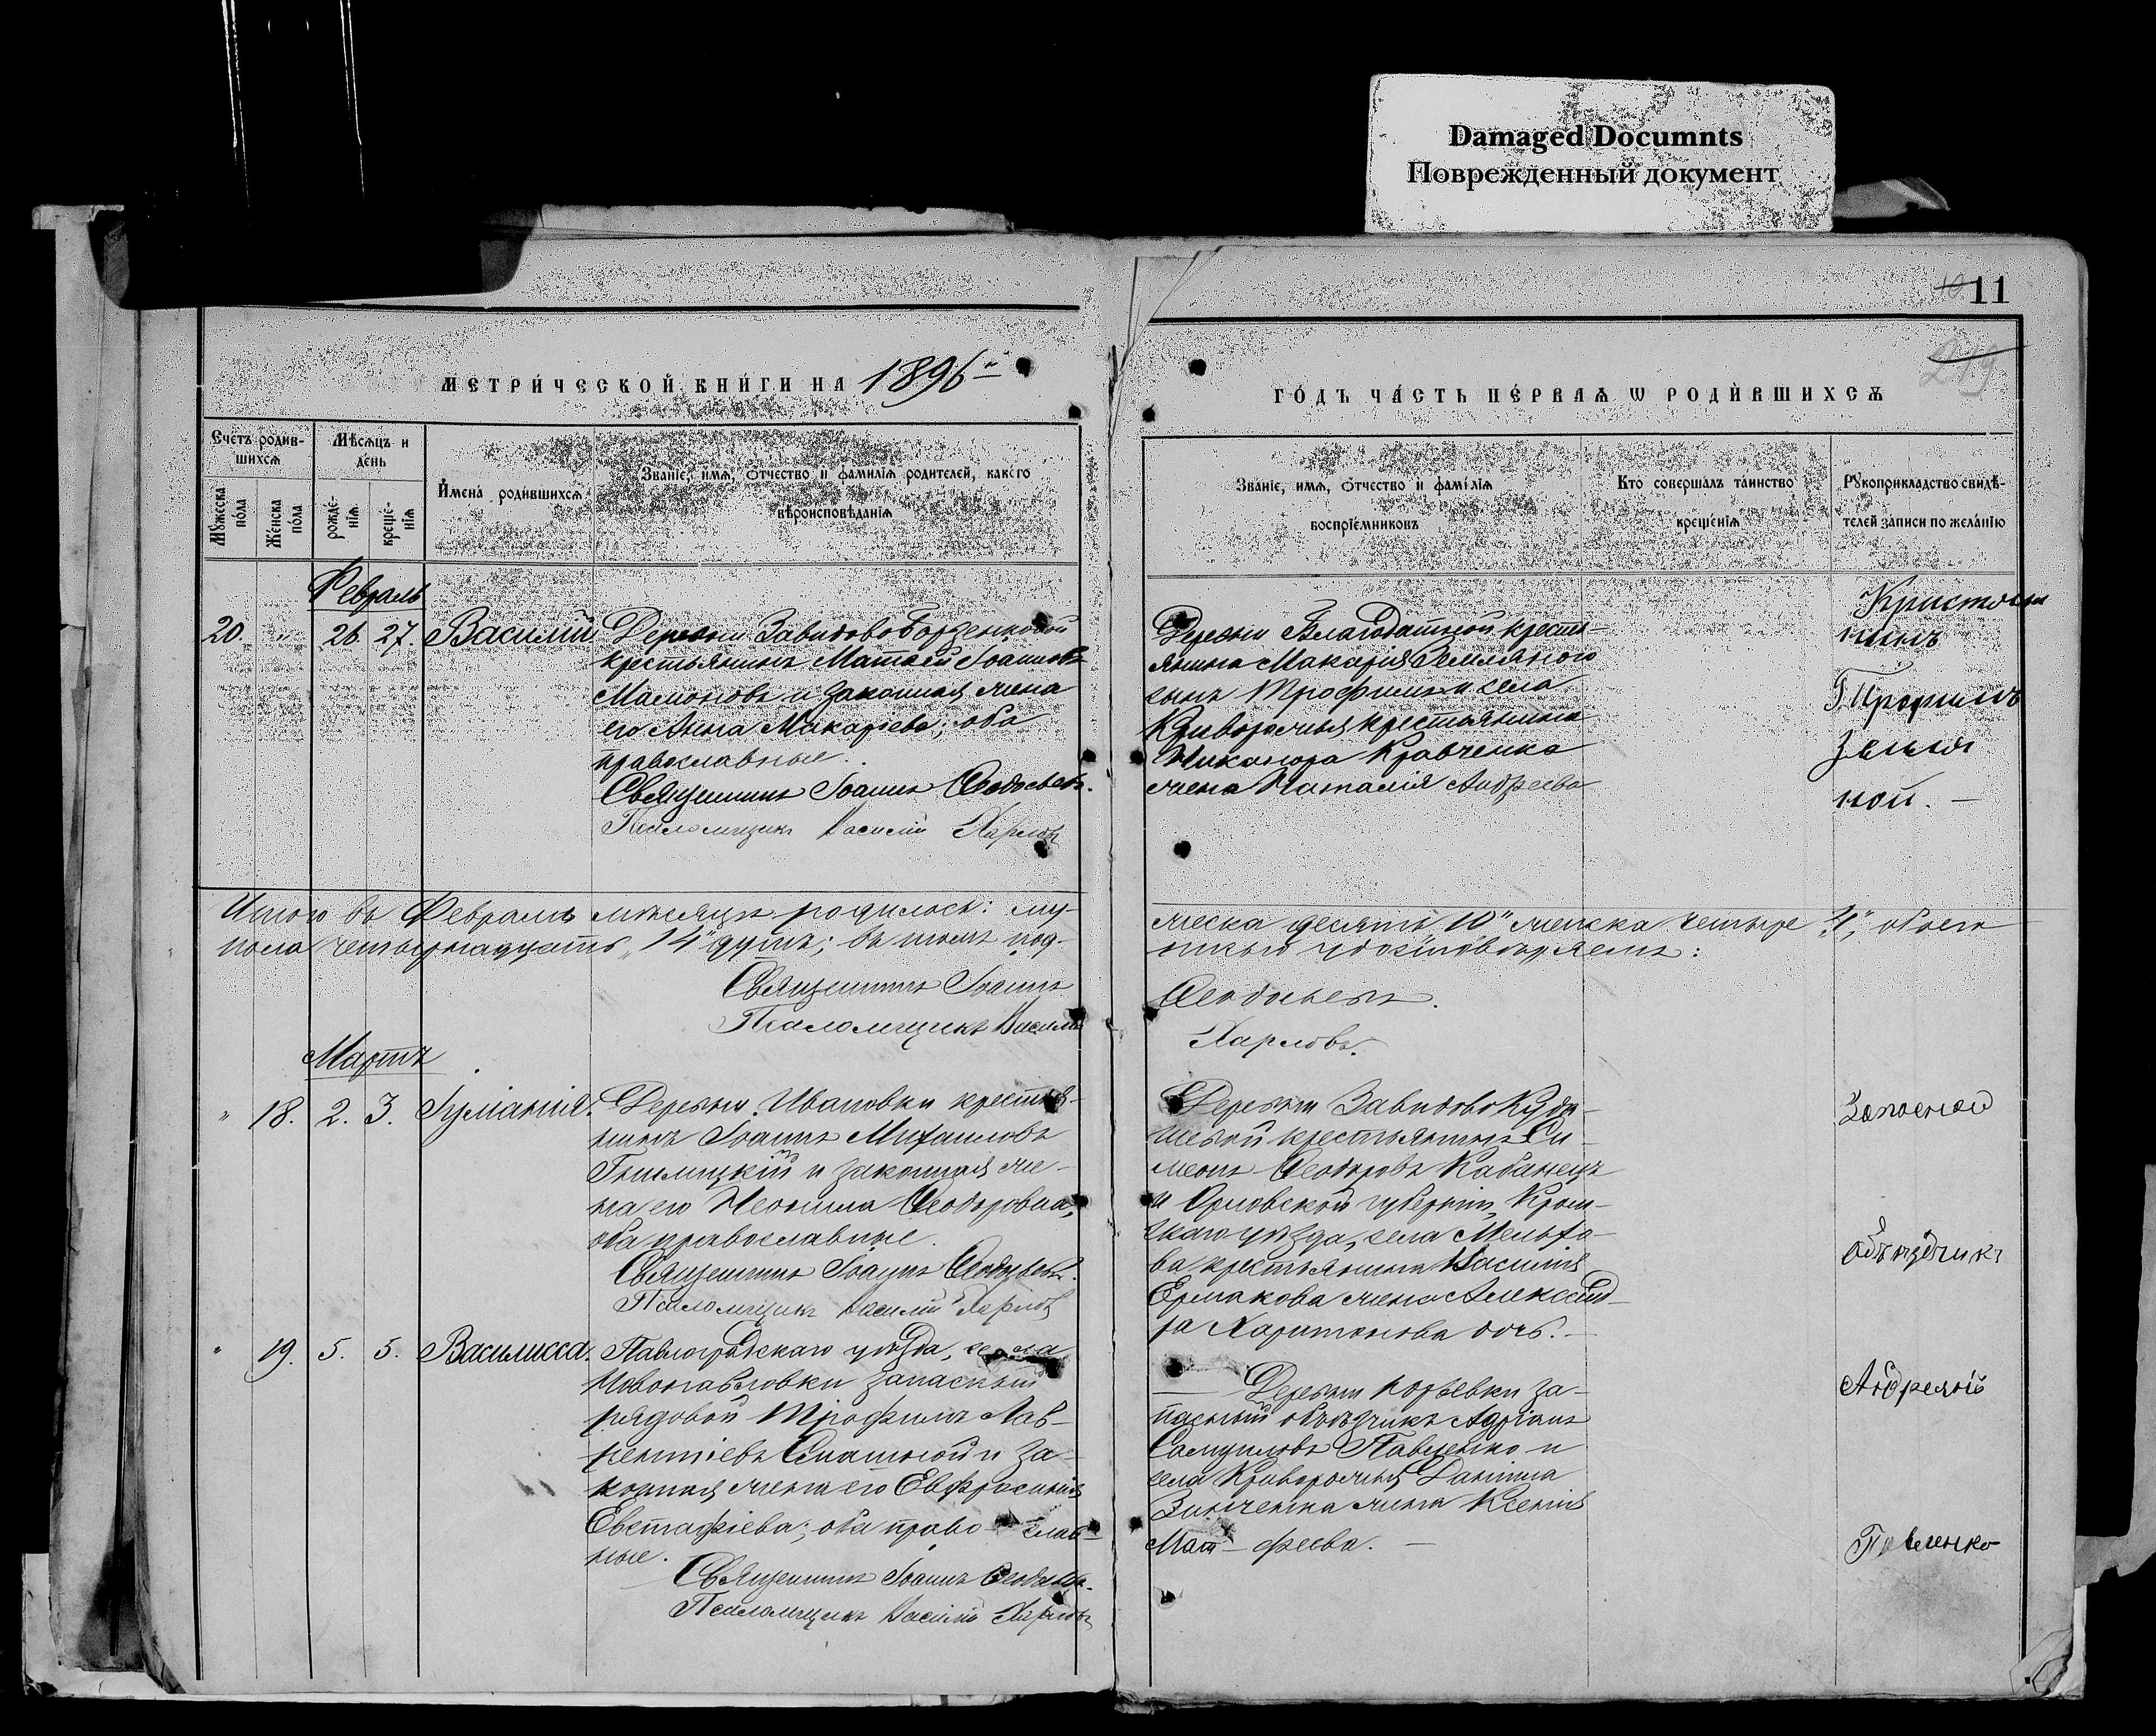 Damaged Documnts
Поврежденный документ
11
219
МЕТРИ́ЧЕСКОЙ КНИ́ГИ НА 1896й
ГО́ДЪ ЧА́СТЬ ПЕ́РВАѦ Ѡ РОДИ́ВШИХСѦ
Счетъ родив-
шихсѧ
Мѣсѧцъ и
день
Мужеска
пола
Женска
пола
рожде-
нїѧ
креще-
нїѧ
Имена родившихсѧ
Званїе, имѧ, ѻтчество и фамилїѧ родителей, какого
вѣроисповѣданїѧ
Званїе, имѧ, ѻтчество и фамилїѧ
воспрїемниковъ
Кто совершалъ таинство
крещенїѧ
Рукоприкладство свидѣ-
телей записи по желанїю
Февраль
20. " 26. 27. Василій
Деревни Завидово Борзенковой
крестьянинъ Матѳей Іоанновъ
Мамоновъ и законная жена
его Анна Макаріева; оба
православные.
Священникъ Іоаннъ Ѳеодосьевъ.
Псаломщикъ Василій Харловъ
Деревни Благодатной кресть-
янина Макарія Земляного
сынъ Трофимъ и села
Криворожья крестьянина
Никанора Кравченка
жена Наталія Андреева
нинъ
Трофимъ
Земля
ной. —
Итого въ Февралѣ мѣсяцѣ родилось: му-
жеска десять "10" женска четыре "4", обоего
пола четырнадцать "14" душъ; въ томъ под-
писью удостовѣряемъ:
Священникъ Іоаннъ
Ѳеодосьевъ.
Псаломщикъ Василій
Харловъ.
Мартъ
" 18. 2. 3. Іуліанія.
Деревни Ивановки крестья-
нинъ Іоаннъ Михаиловъ
и законная же-
на его Неонила Ѳеодоровна,
оба православные.
Священникъ Іоаннъ Ѳеодосьевъ.
Псаломщикъ Василій Харловъ
Деревни Завидово Куди-
шевой крестьянинъ Си-
меонъ Ѳеодоровъ Кабанецъ
и Орловской губерніи, Кром-
скаго уѣзда, села Мельхо-
ва крестьянина Василія
Ермакова жена Александ-
ра Харитонова дочь. —
" 19. 5. 5. Василисса.
Павлоградскаго уѣзда, села
Новопавловки запасный
рядовой Трофимъ Лав-
рентіевъ и за-
конная жена его Евфросинія
Евстафіева; оба право — слав-
ные.
Священникъ Іоаннъ Ѳеодосьевъ.
Псаломщикъ Василій Харловъ
Деревни Юрьевки за-
пасный объѣздчикъ Адріанъ
Самуиловъ Павленко и
села Криворожья Даніила
Зинченка жена Ксенія
Мат — феева. —
Запасной
объѣздчикъ
Андреянъ
Павленко